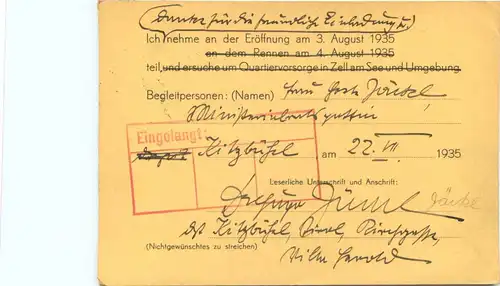 (Danke für die freundliche Einladung u.)
Ich nehme an der Eröffnung am 3. August 1935
an dem Rennen am 4. August 1935
teil und ersuche um Quartiervorsorge in Zell am See und Umgebung.
Begleitpersonen: (Namen) Frau
Ministerialratsgattin
Eingelangt:
Kitzbühel, am 22. VII 1935
Leserliche Unterschrift und Anschrift:
dzt Kitzbühel, Tirol, Kirchgasse,
(Nichtgewünschtes zu streichen)
Villa Herold